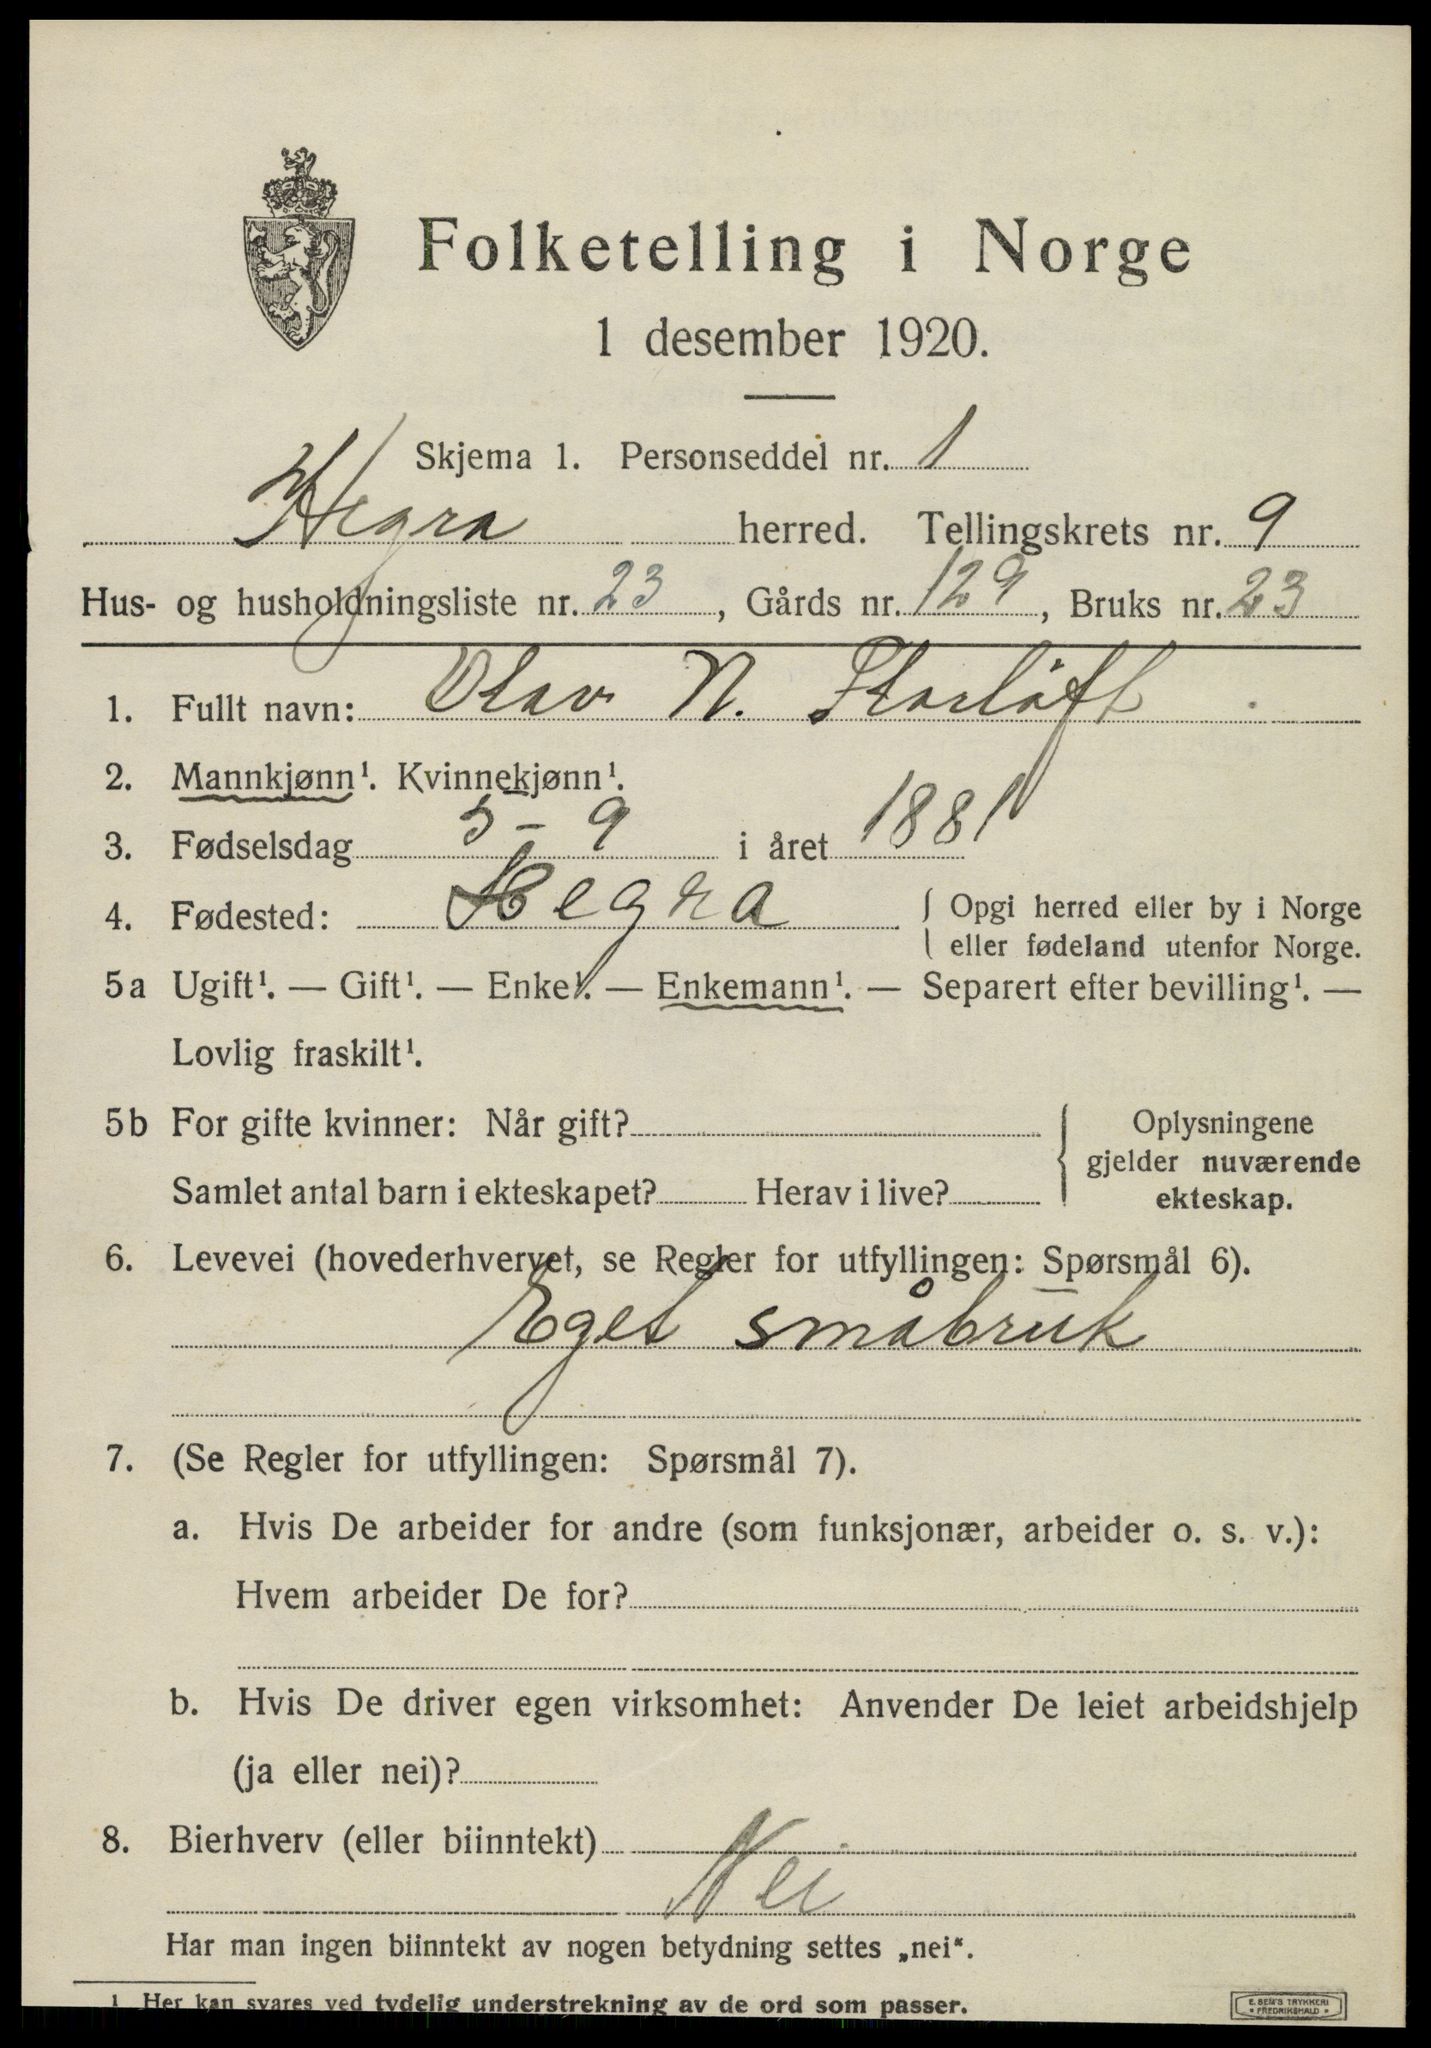 Folketelling i Norge
1 desember 1920.
Skjema 1. Personseddel nr. 1
Hegra herred. Tellingskrets nr. 9
Hus- og husholdningsliste nr. 23, Gårds nr. 129, Bruks nr. 23
1. Fullt navn: Olav N.
2. Mannkjønn¹. Kvinnekjønn¹.
3. Fødselsdag 5-9 i året 1881
4. Fødested: Hegra { Opgi herred eller by i Norge
eller fødeland utenfor Norge.
5a Ugift¹. — Gift¹. — Enke¹. — Enkemann¹. — Separert efter bevilling¹. —
Lovlig fraskilt¹.
5b For gifte kvinner: Når gift?
Samlet antal barn i ekteskapet? Herav i live?
Oplysningene
gjelder nuværende
ekteskap.
6. Levevei (hovederhvervet, se Regler for utfyllingen: Spørsmål 6).
Eget småbruk
7. (Se Regler for utfyllingen: Spørsmål 7).
a. Hvis De arbeider for andre (som funksjonær, arbeider o. s. v.):
Hvem arbeider De for?
b. Hvis De driver egen virksomhet: Anvender De leiet arbeidshjelp
(ja eller nei)?
8. Bierhverv (eller biinntekt)
Nei
Har man ingen biinntekt av nogen betydning settes „nei“.
¹ Her kan svares ved tydelig understrekning av de ord som passer.
E. SEM'S TRYKKERI
* FREDRIKSHALD *